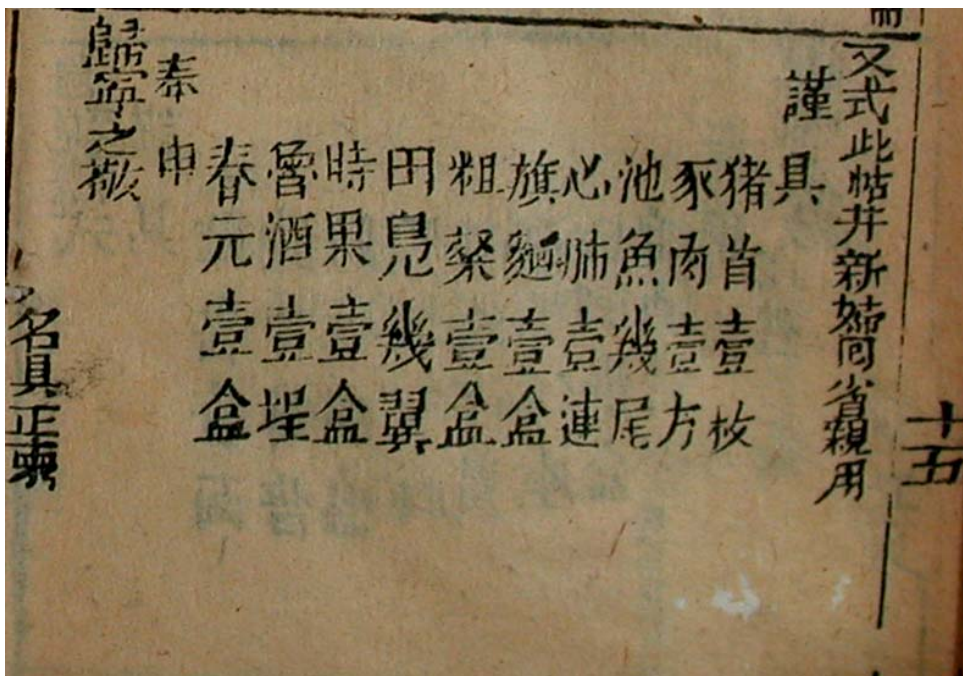 十五
又式此帖并新婚同省親用
謹具
猪首壹枚
豕肉壹方
池魚幾尾
心肺壹連
旗麵壹盒
粗粲壹盒
田鳧幾翼
時果壹盒
魯酒壹埕
春元壹盒
奉申
歸寧之敬
名具正